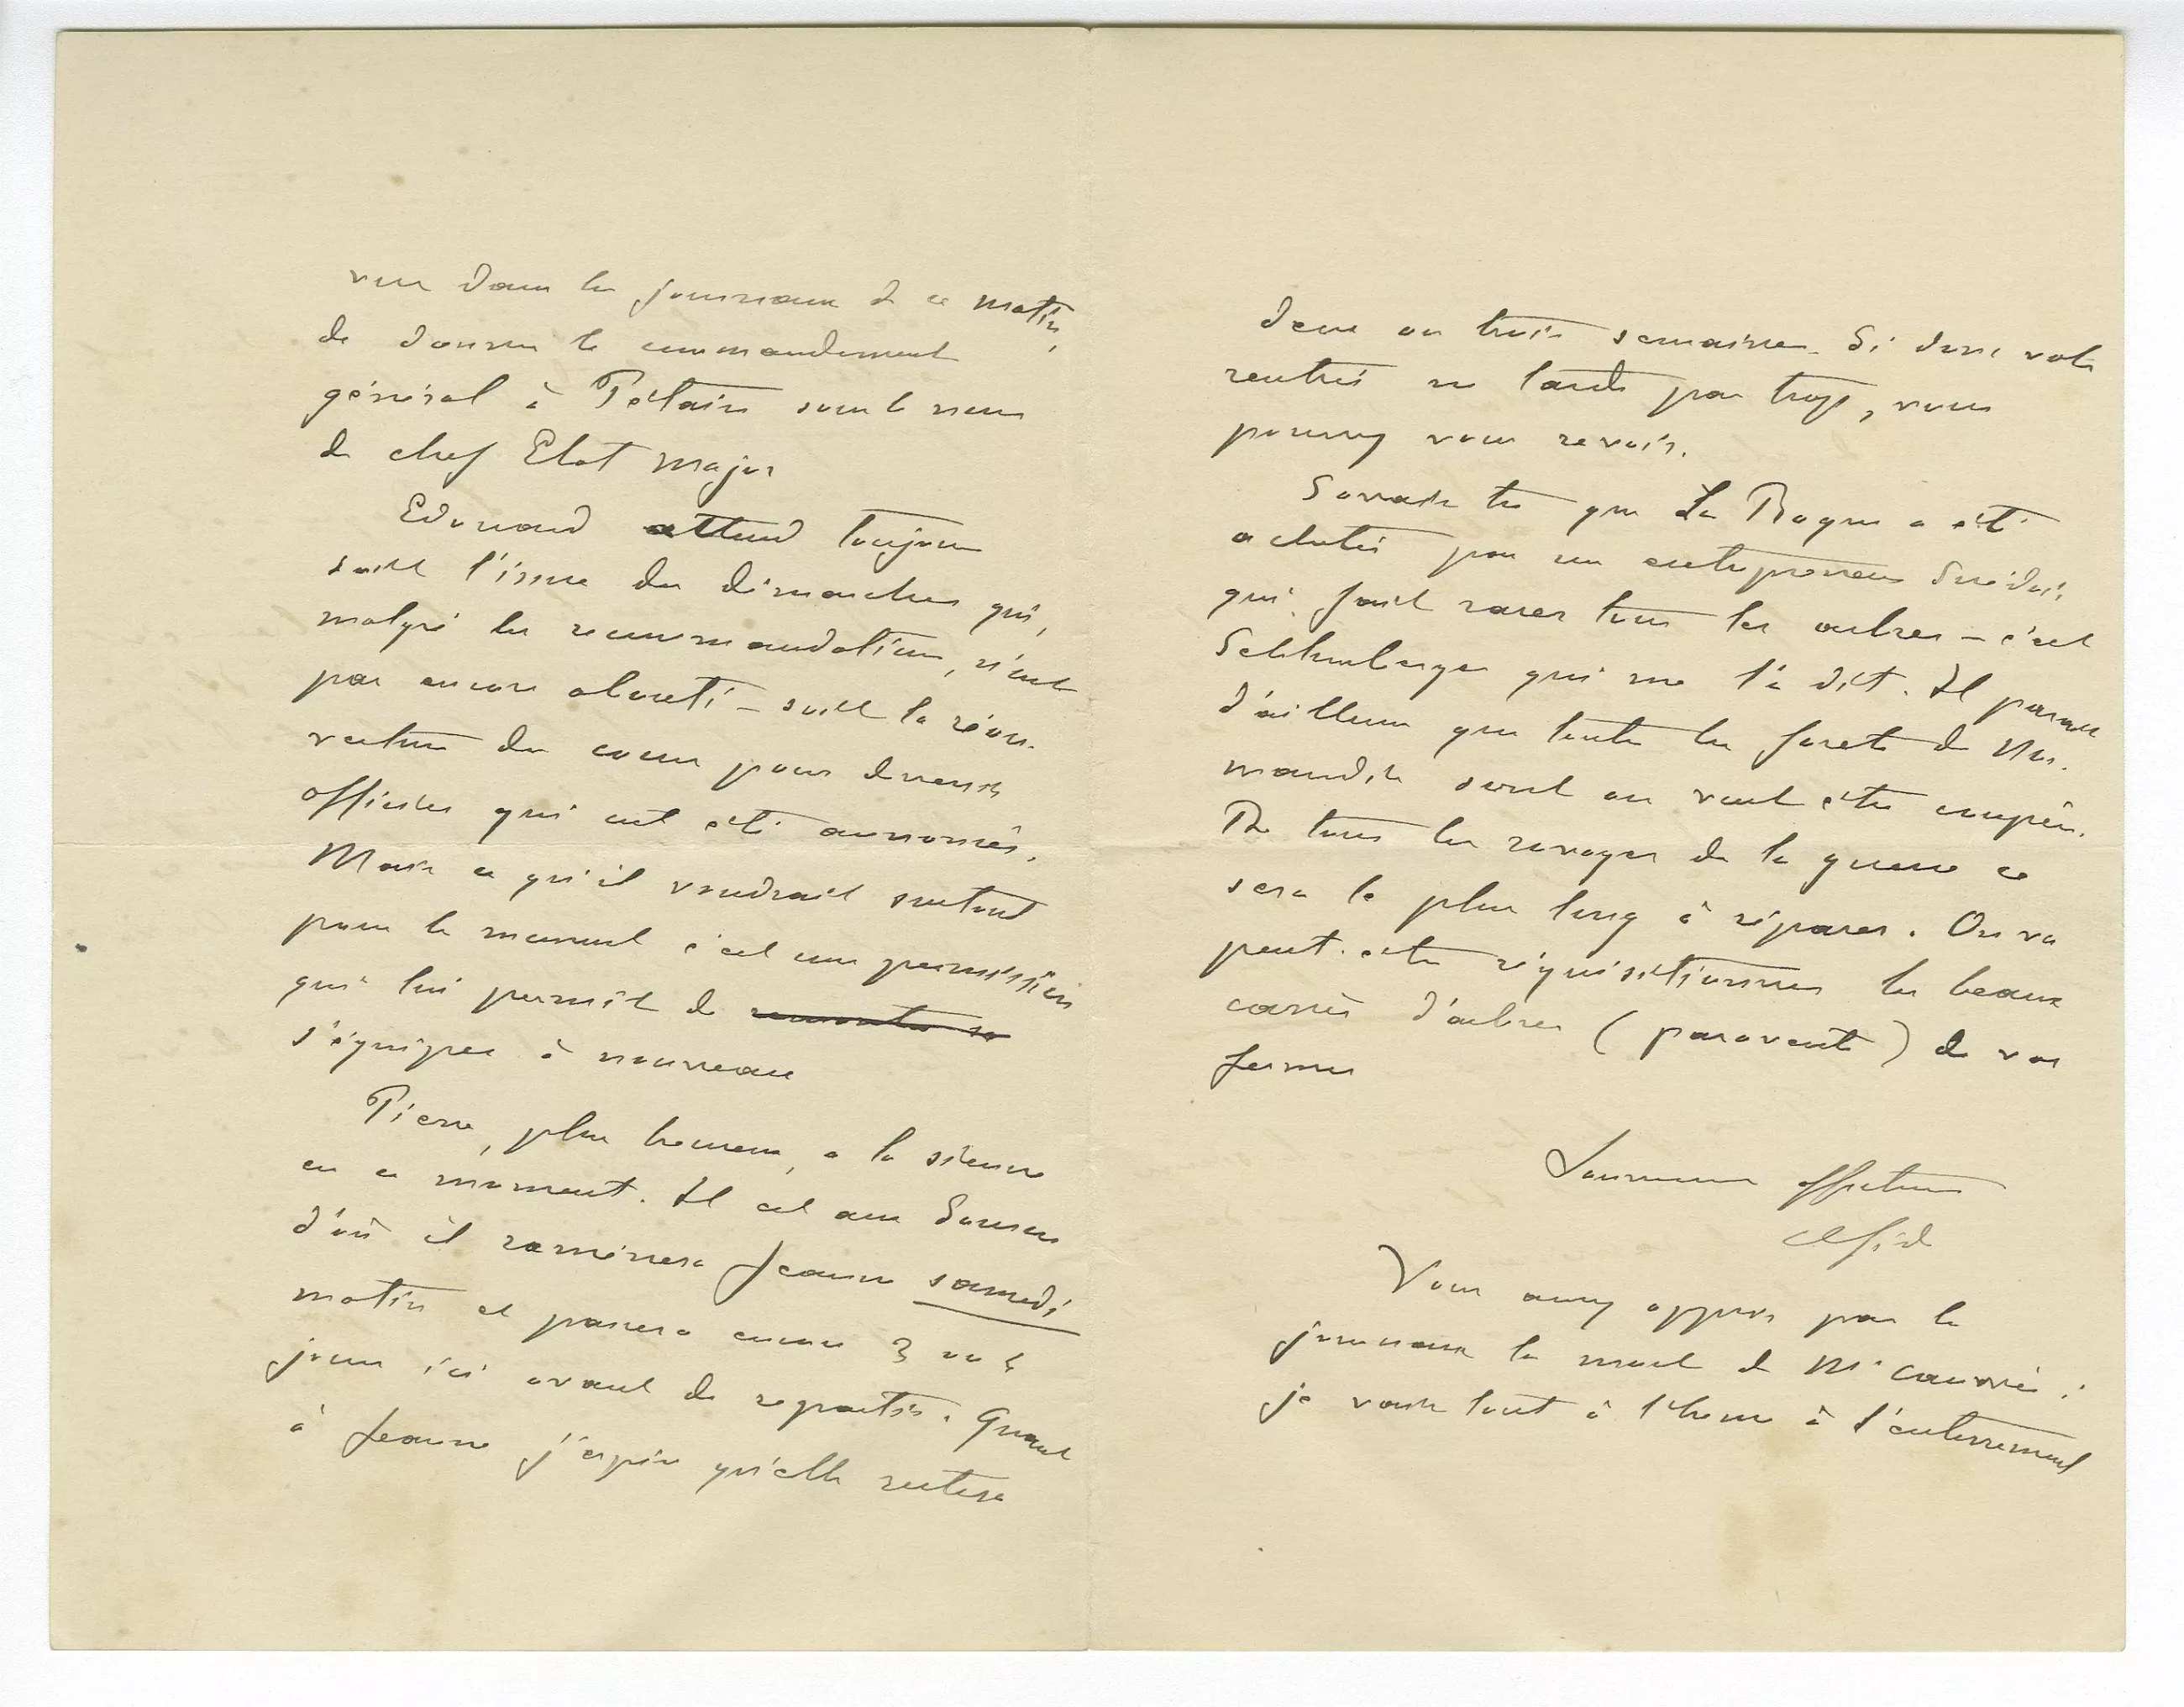 vu dans les journaux de ce matin,
de donner le commandement
général à Pétain sous le nom
de chef Etat major
Edouard attend toujours
soit l'issue des démarches qui,
malgré les recommandations, n'ont
pas encore abouti – soit la réou-
verture des cours pour devenir
officier qui ont été annoncés.
Mais ce qu'il voudrait surtout
pour le moment c'est une permission
qui lui permît de remonter sa
s'équiper à nouveau
Pierre, plus heureux, a la sienne
en ce moment. Il est aux
d'où il ramènera Jeanne samedi
matin et passera encore 3 ou 4
jours ici avant de repartir. Quant
à Jeanne j'espère qu'elle restera
deux ou trois semaines. Si donc votre
rentrée ne tarde pas trop, vous
pourrez vous revoir.
Savais tu que La Roque a été
achetée par un entrepreneur Suédois
qui fait raser tous les arbres – c'est
Schlumberger qui me l'a dit. Il paraît
d'ailleurs que toutes les forets de Nor-
mandie sont ou vont être coupées.
De tous les ravages de la guerre ce
sera le plus long à réparer. On va
peut-etre réquisitionner les beaux
carrés d'arbres (paravents) de vos
fermes
affectueux

Vous aurez appris par les
journaux la mort de Mr :
je vais tout à l'heure à l'enterrement